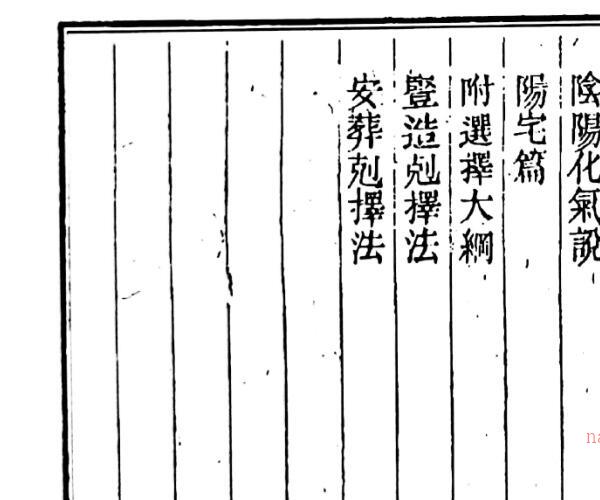 陰陽化氣說
陽宅篇
附選擇大綱
豎造剋擇法
安葬剋擇法
na